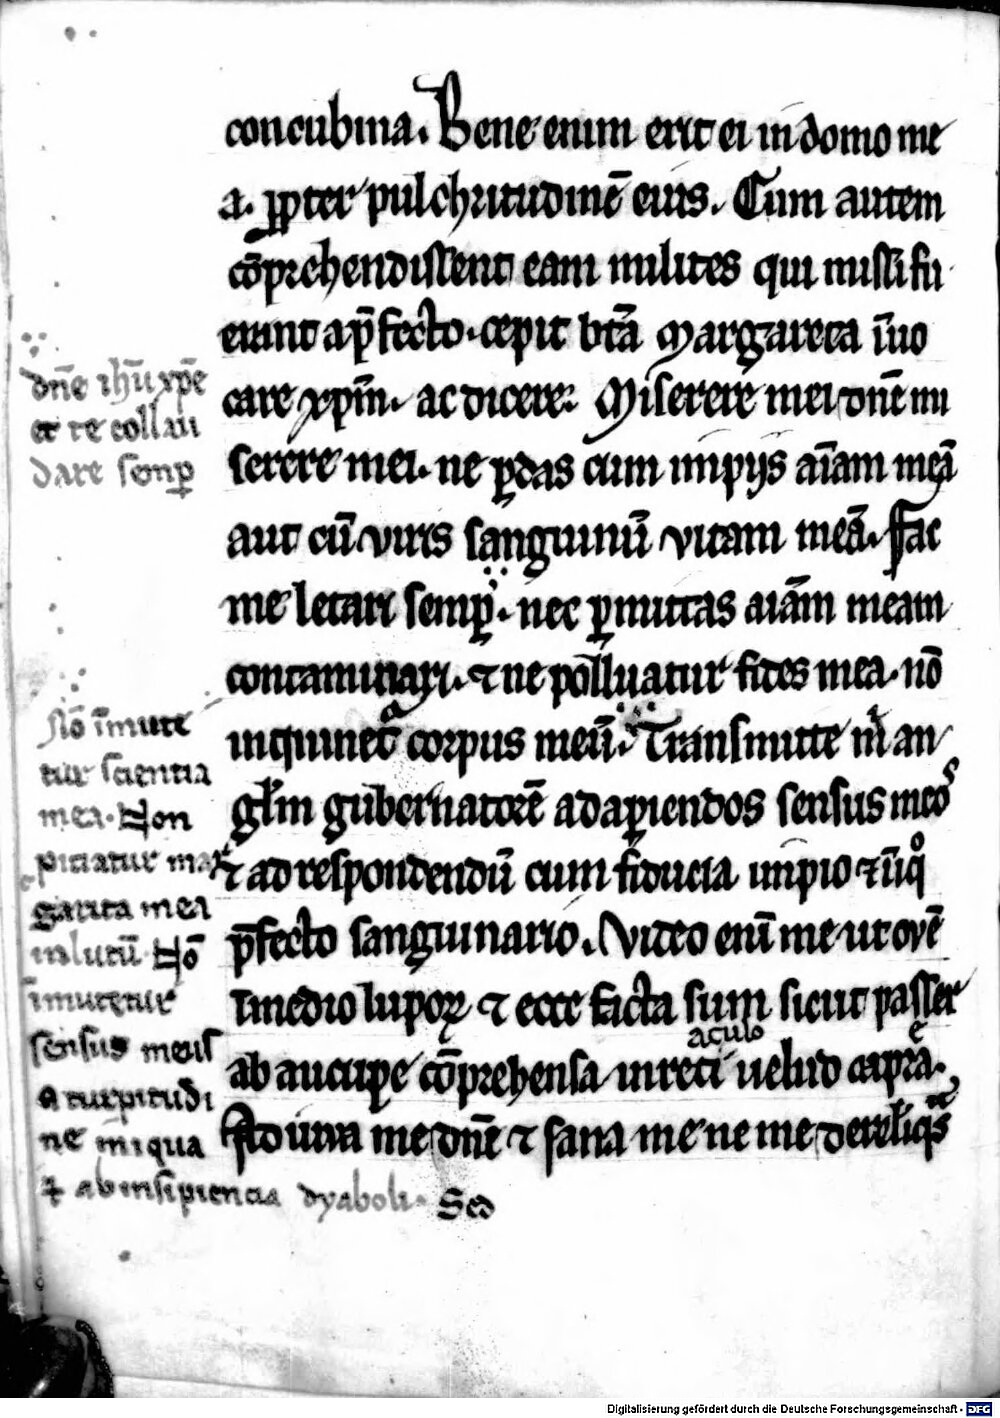 concubina. Bene enim erit ei in domo me
a. ꝓpter pulchritudinē eius. Cum autem
cōprehendissent eam milites qui missi fu
erant a p̄fecto. cepit btā Margareta īuo
care xp̄m. ac dicere. Miserere mei dn̄e mi
serere mei. ne ꝑdas cum impijs aīam meā
aut cū viris sanguinū vitam meā. Fac
me letari semꝑ. nec ꝑmittas aīam meam
contaminari. ⁊ ne polluatur fides mea. nō
inquinet corpus meū. Transmitte m̄ an
gl̄m gubernatorē ad aꝑiendos sensus meos
⁊ ad respondendū cum fiducia impio ⁊ iīqͦ
p̄fecto sanguinario. Video enī me ut ovē
ī medio lupoꝝ ⁊ ecce facta sum sicut passer
ab aucupe cōprehensa in reti uelud capra.
aculo
Adiuua me dn̄e ⁊ sana me ne me derelīqs
dn̄e ihū xp̄e
et te collau
dare semꝑ
Nō īmute
tur scientia
mea. Non
piciatur mar
garita mea
in lutū Nō
īmutetur
sensus meus
a turpitudi
ne iniqua
⁊ ab insipiencia dyaboli. Sed
Digitalisierung gefördert durch die Deutsche Forschungsgemeinschaft - DFG